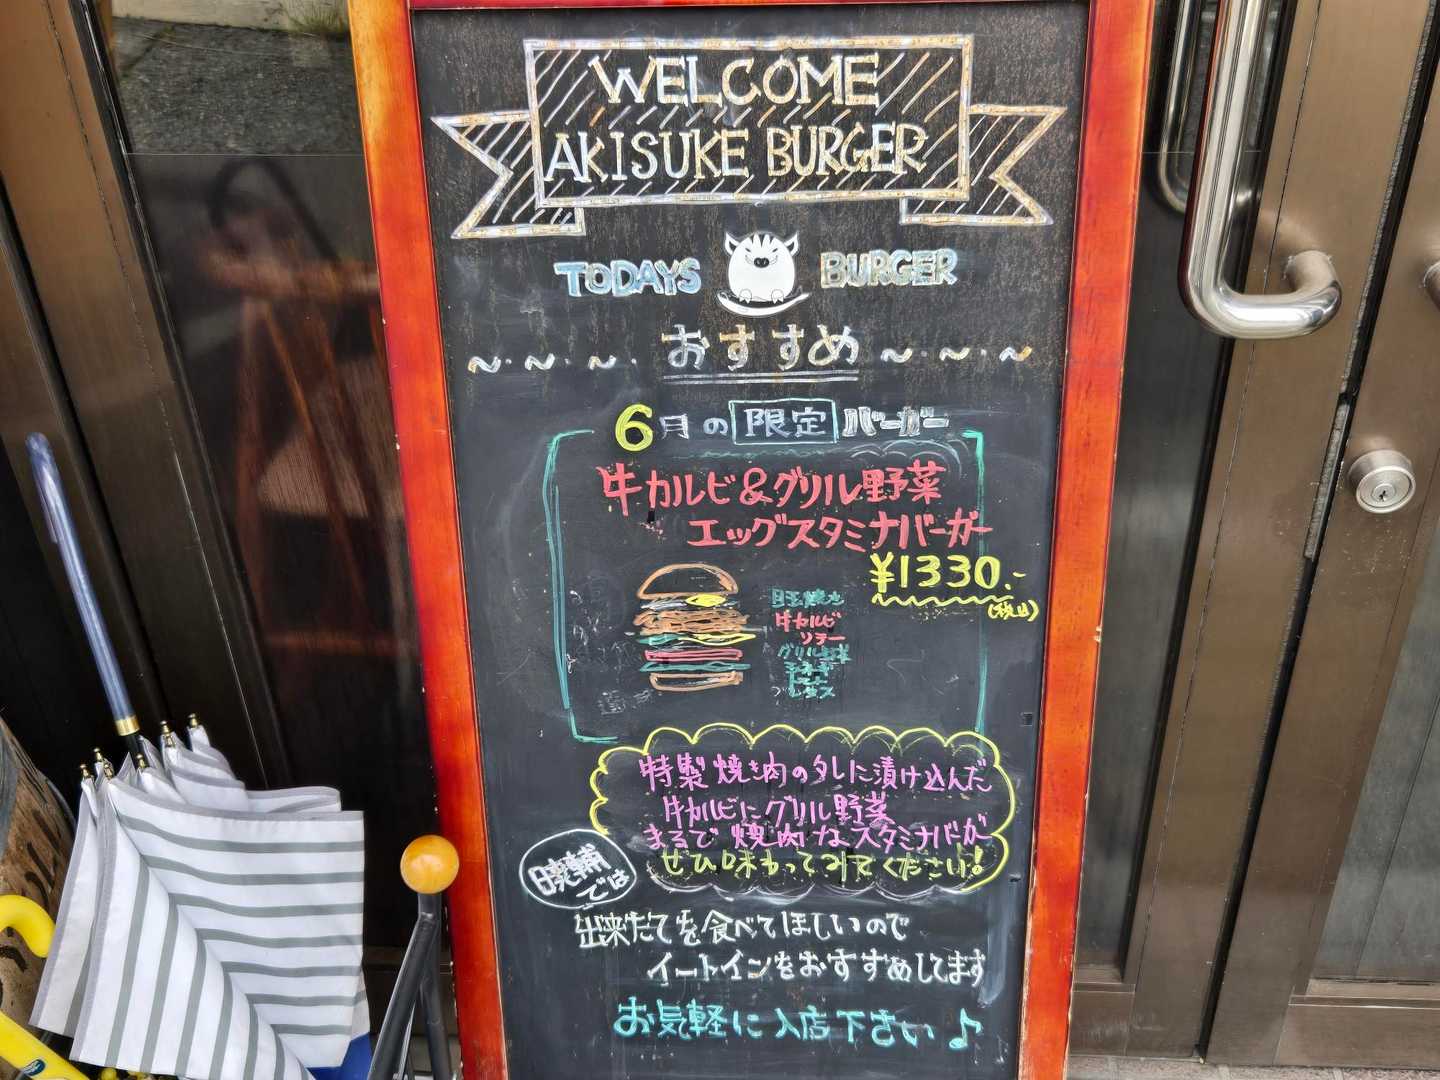 WELCOME
AKISUKE BURGER
TODAYS BURGER
おすすめ
6月の限定バーガー
牛カルビ&グリル野菜
エッグスタミナバーガー
¥1330.-
(税込)
目玉焼き
牛カルビ
ソテー
グリル野菜
トマト
レタス
特製焼き肉のタレに漬け込んだ
牛カルビにグリル野菜
まるで焼肉なスタミナバーガー
ぜひ味わってみてください!
暁輔では
出来たてを食べてほしいので
イートインをおすすめしてます
お気軽に入店下さい♪